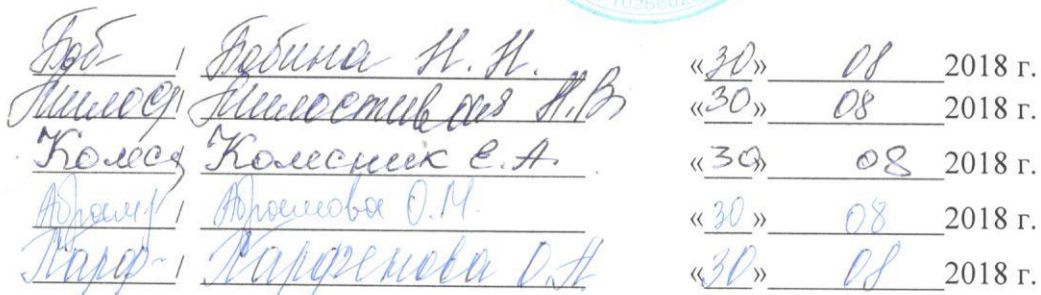 Боб- / Бобина Н. Н. «30» 08 2018 г.
Милос / Милостивая Н.В. «30» 08 2018 г.
Колес / Колесник Е.А. «30» 08 2018 г.
Абрам / Абрамова О.М. «30» 08 2018 г.
Парф- / Парфенова О.Н «30» 08 2018 г.